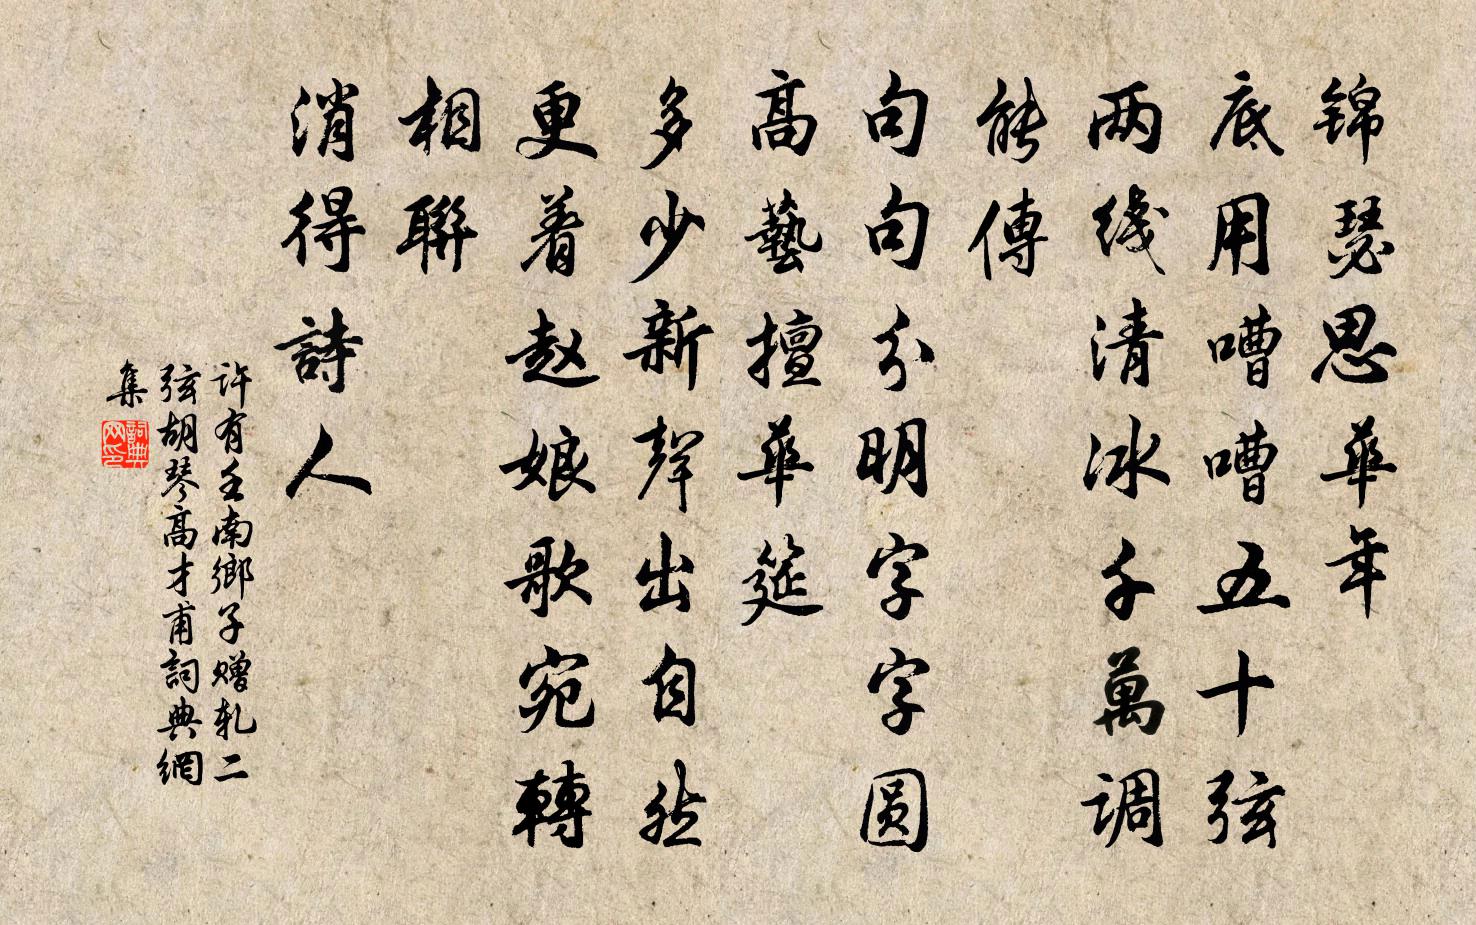 錦瑟思華年
底用嘈嘈五十弦
两线清冰千萬调
能傳
句句分明字字圆
高藝擅華筵
多少新聲出自然
更着赵娘歌宛轉
相聯
消得詩人
許有壬南鄉子赠札二
弦胡琴高才甫詞典網
集
詞典
网印